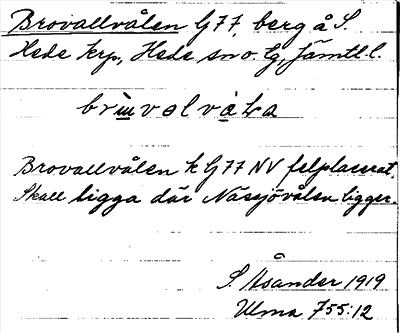 Brovallvålen G77, berg å S.
Hede krp., Hede sn o. lg, Jämtl. l.
Brovallvålen k G 77 NV felplacerat.
Skall ligga där Nässjövålen ligger.
S. Åsander 1919
Ulma 755:12